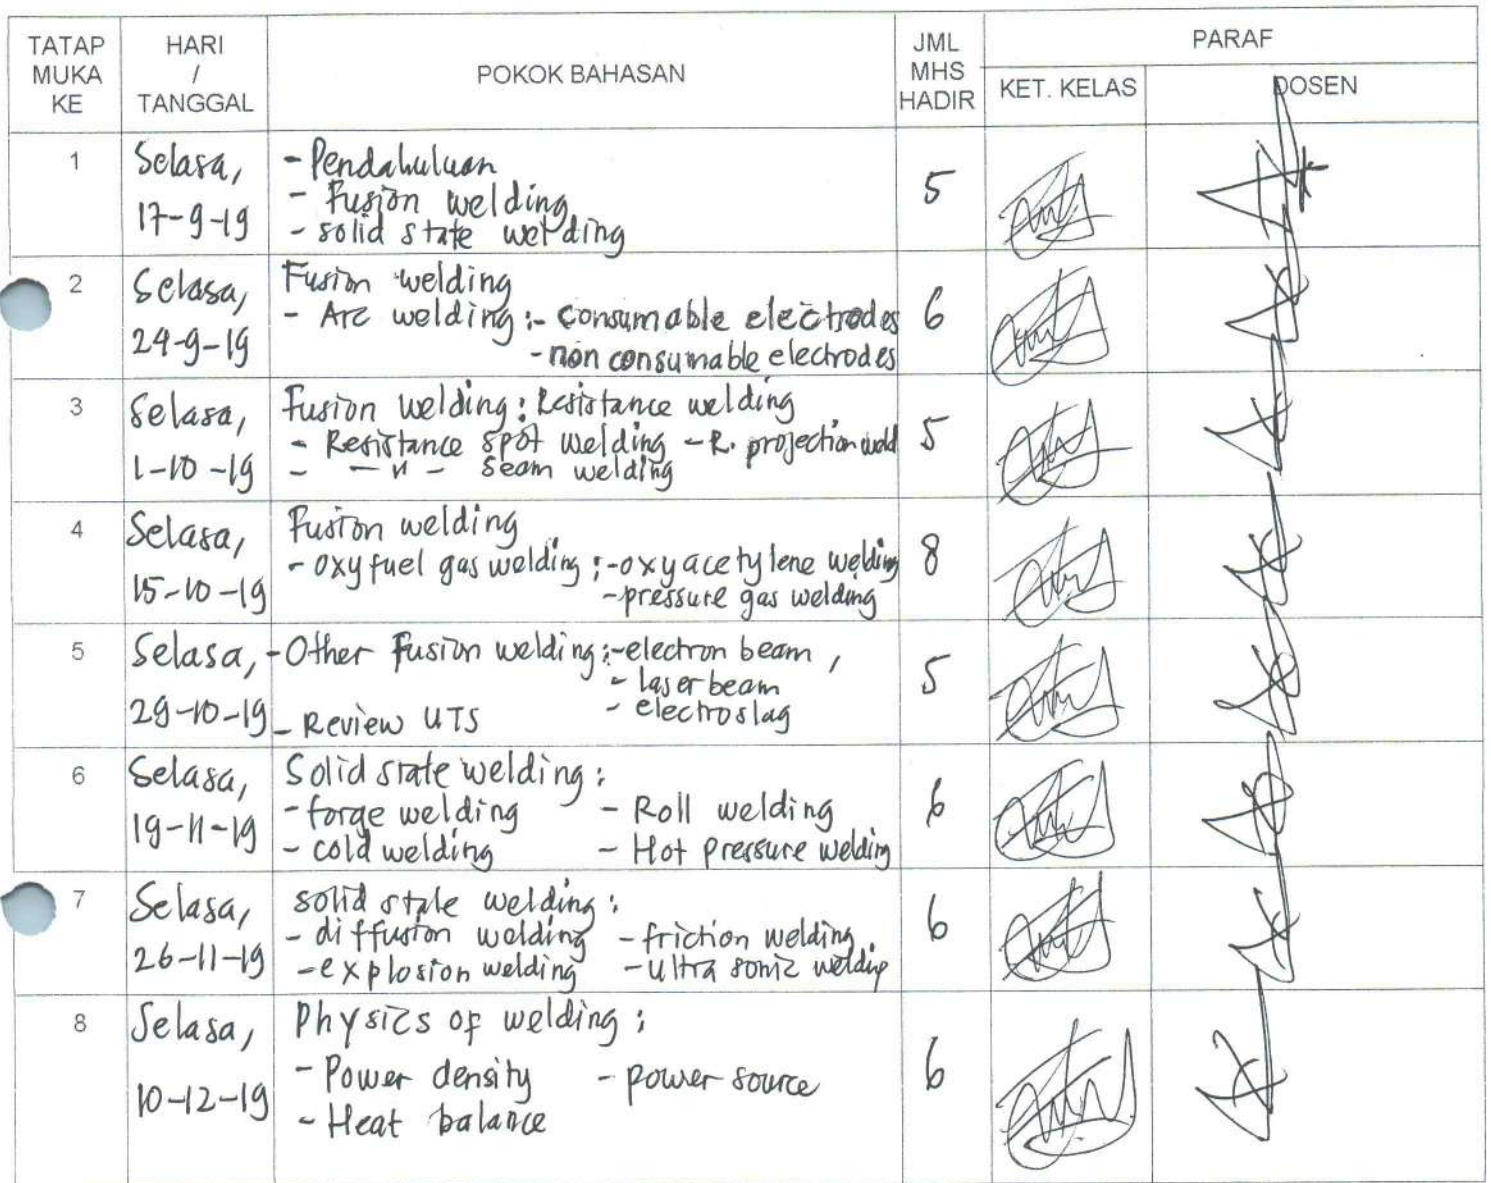 TATAP MUKA KE
HARI / TANGGAL
POKOK BAHASAN
JML MHS HADIR
PARAF
KET. KELAS
DOSEN
1
Selasa,
17-9-19
- Pendahuluan
- Fusion welding
- solid state welding
5
2
Selasa,
24-9-19
Fusion welding
- Arc welding :- consumable electrodes
- non consumable electrodes
6
3
Selasa,
1-10-19
Fusion welding : Resistance welding
- Resistance spot welding - R. projection weld
- — " — seam welding
5
4
Selasa,
15-10-19
Fusion welding
- oxy fuel gas welding ; - oxyacetylene welding
- pressure gas welding
8
5
Selasa,
29-10-19
- Other fusion welding :- electron beam ,
- laser beam
- electroslag
- Review UTS
5
6
Selasa,
19-11-19
Solid state welding :
- forge welding - Roll welding
- cold welding - Hot pressure welding
6
7
Selasa,
26-11-19
solid state welding :
- diffusion welding - friction welding.
- explosion welding - ultra sonic welding
6
8
Selasa,
10-12-19
Physics of welding ;
- Power density - power source
- Heat balance
6